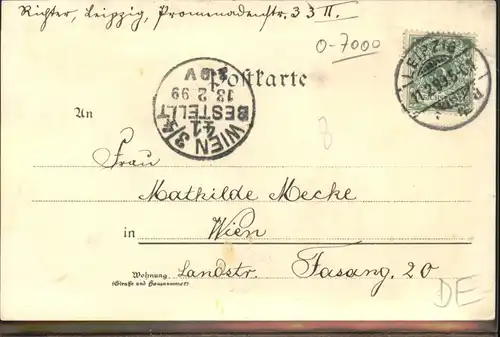 Richter, Leipzig, Promenadenstr. 33 II.
0-7000
LEIPZIG
Postkarte
WIEN 3/3
41
BESTELLT
13 2 99
An
8
Frau
Mathilde Mecke
in Wien
Wohnung Landstr. Fasang. 20
(Straße und Hausnummer)
DE